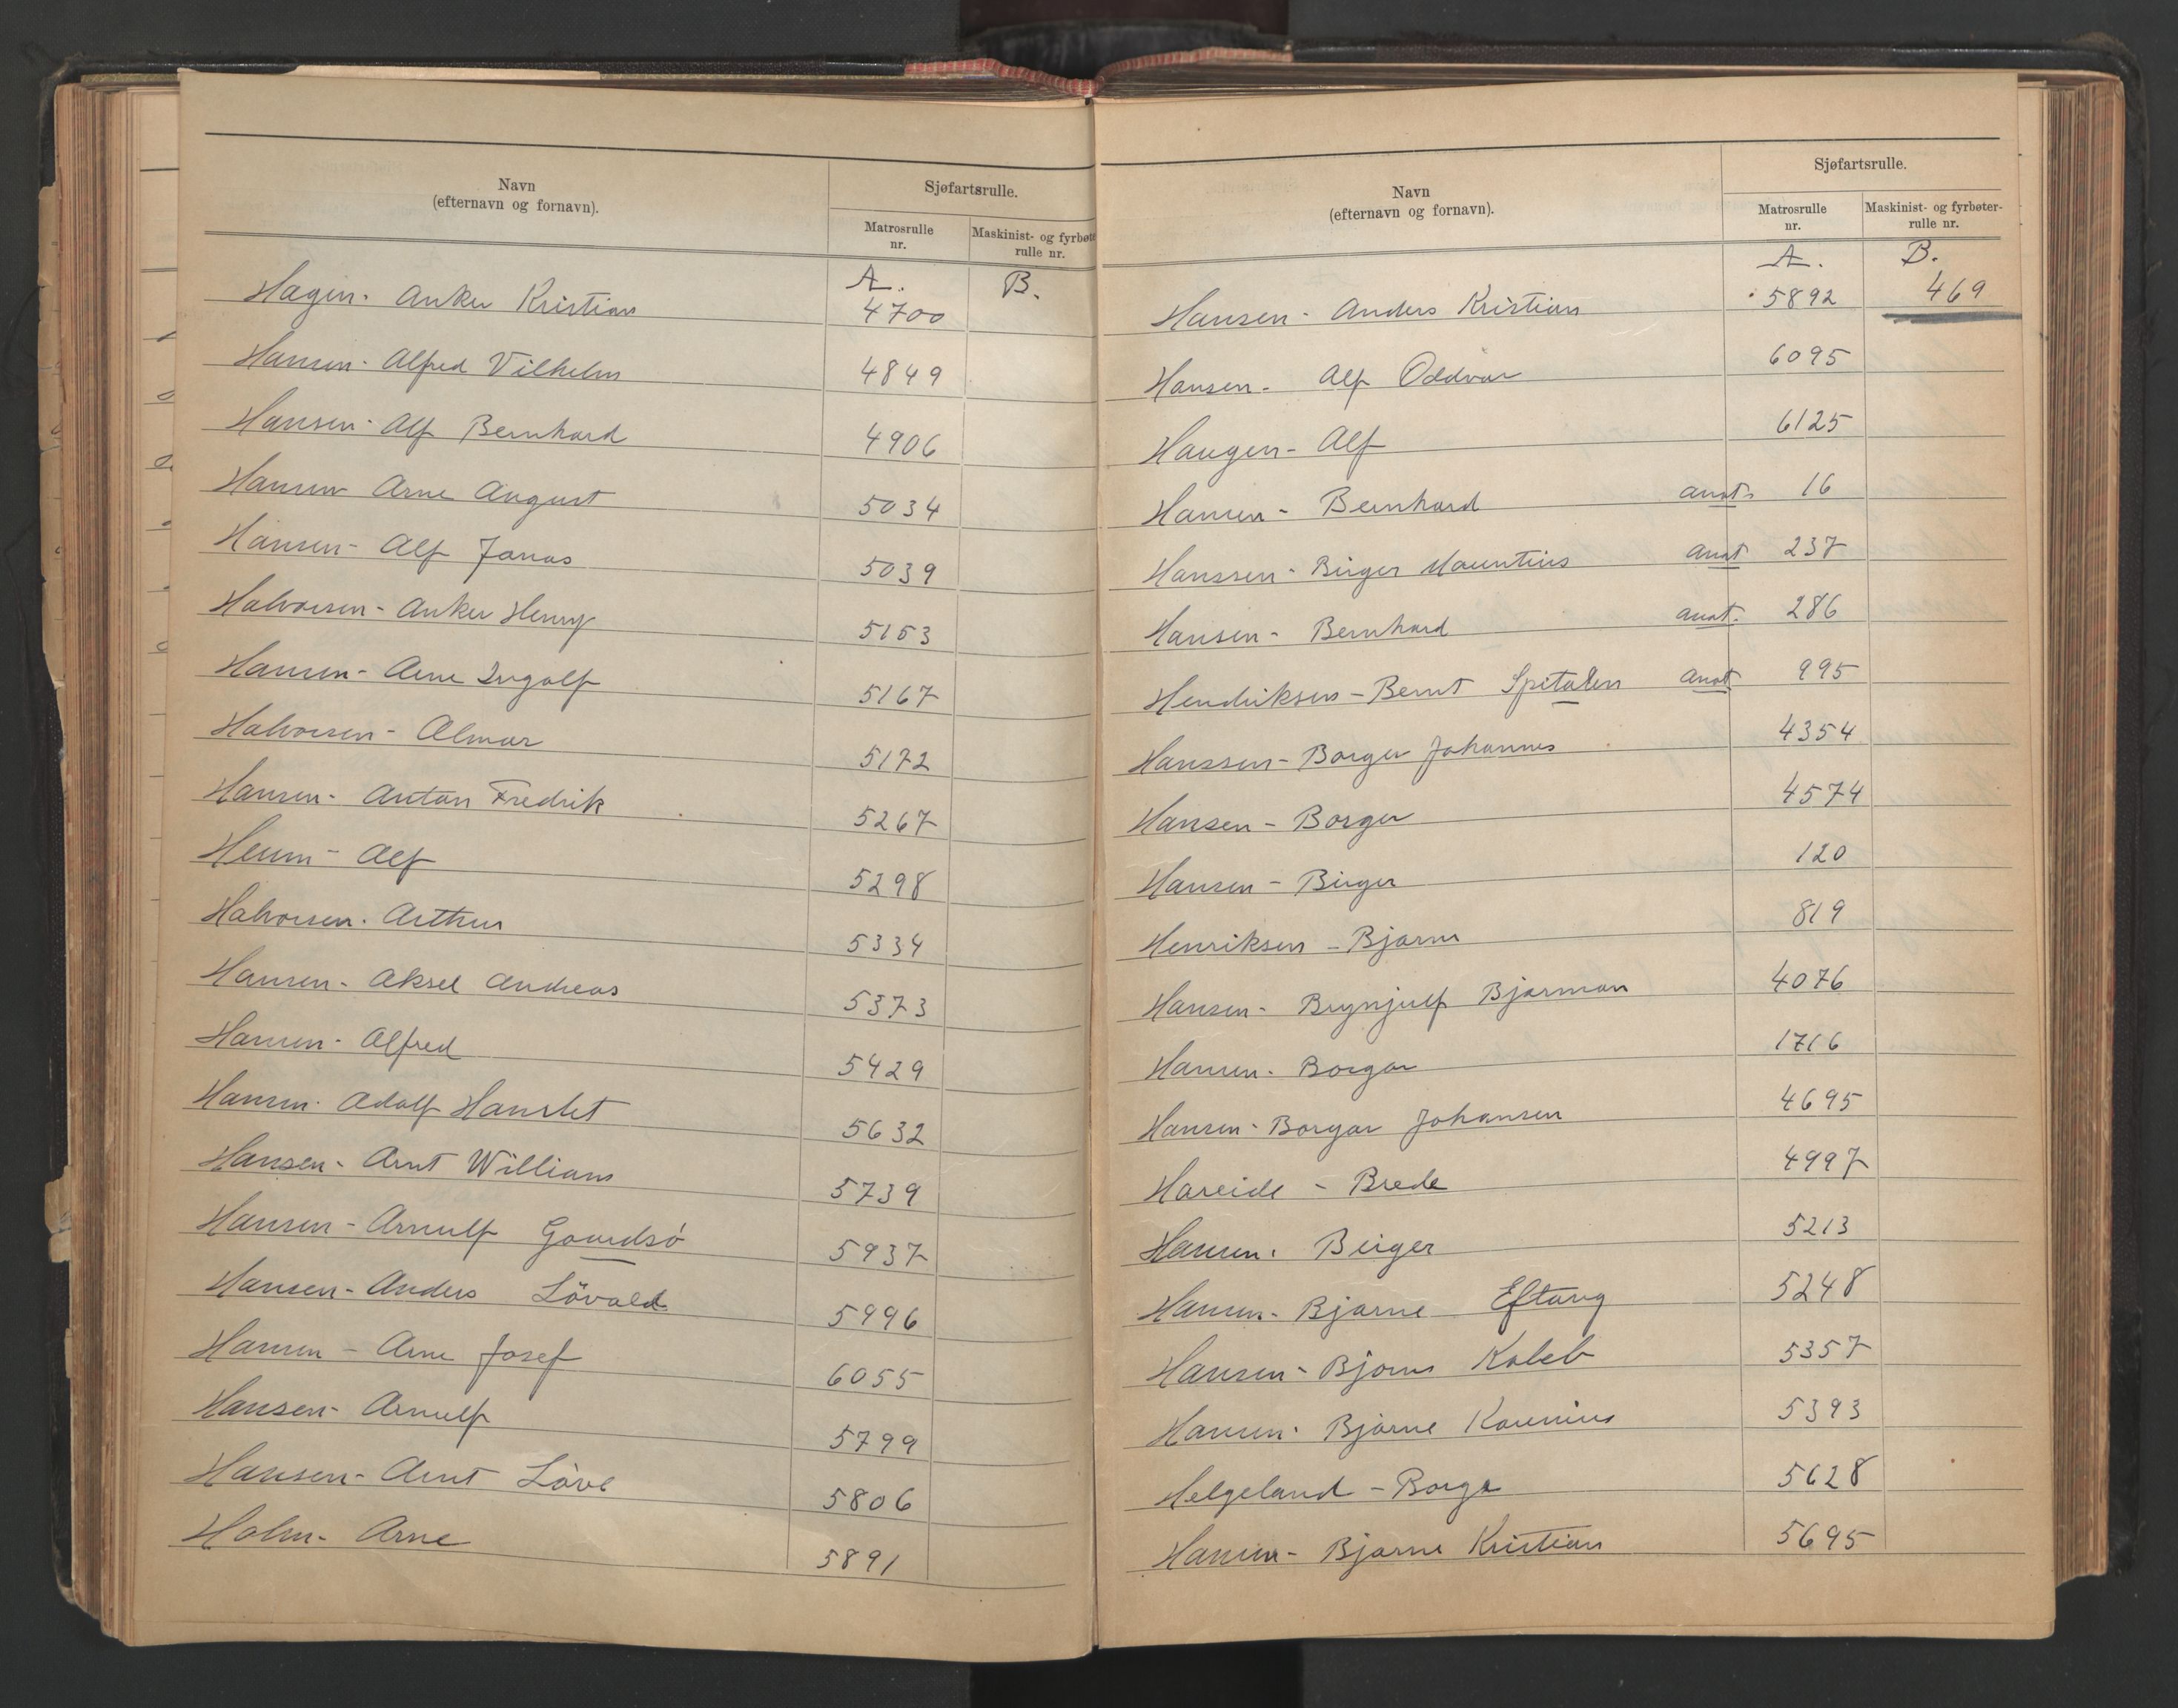 Navn
(efternavn og fornavn).
Sjøfartsrulle.
Matrosrulle
nr.
Maskinist- og fyrbøter-
rulle nr.
A. B.
Hagen - Anker Kristian 4700
Hansen - Alfred Vilhelm 4849
Hansen - Alf Bernhard 4906
Hansen Arne August 5034
Hansen - Alf Jonas 5039
Halvorsen - Anker Henry 5153
Hansen - Arne Ingolf 5167
Halvorsen - Almar 5172
Hansen - Anton Fredrik 5267
Heum - Alf 5298
Halvorsen - Arthur 5334
Hansen - Aksel Andreas 5373
Hansen - Alfred 5429
Hansen - Adolf Hanslet 5632
Hansen - Arnt William 5739
Hansen - Arnulf 5937
Hansen - Anders Lövald 5996
Hansen - Arne Josef 6055
Hansen - Arnulf 5799
Hansen - Arnt Löve 5806
Holm - Arne 5891
Navn
(efternavn og fornavn).
Sjøfartsrulle.
Matrosrulle
nr.
Maskinist- og fyrbøter-
rulle nr.
A. B.
Hansen - Anders Kristian 5892 469
Hansen - Alf Oddvar 6095
Haugen - Alf 6125
Hansen - Bernhard anat. 16
Hanssen - Birger Mauritius anat 237
Hansen - Bernhard anat. 286
Hendriksen - Bernt Spitalen anat 995
Hanssen - Borger Johannes 4354
Hansen - Borger 4574
Hansen - Birger 120
Henriksen - Bjarne 819
Hansen - Brynjulf Bjarman 4076
Hansen - Borgar 1716
Hansen - Borgar Johansen 4695
Hareide - Brede 4997
Hansen - Birger 5213
Hansen - Bjarne Eftang 5248
Hansen - Bjarne Kaleb 5357
Hansen - Bjarne Karenius 5393
Helgeland - Borge 5628
Hansen - Bjarne Kristian 5695